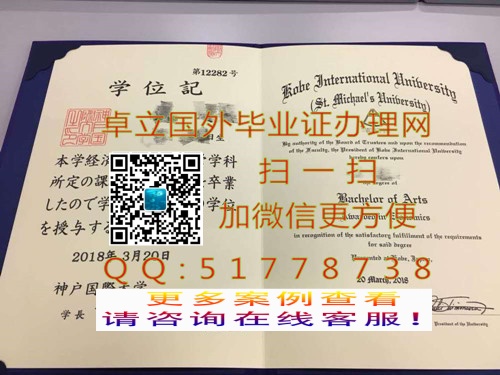 第12282号
学位記
卓立国外毕业证办理网
扫一扫
加微信更方便
QQ:51778738
更多案例查看
请咨询在线客服!
本学経済
学科
所定の課
卒業
したので学
学位
を授与する
2018年3月20日
神戸国際大学
学長
Kobe International University
(St. Michael's University)
By authority of the Board of Trustees and upon the recommendation
of the Faculty, the President of Kobe International University
hereby confers upon
the degree of
Bachelor of Arts
in recognition of the satisfactory fulfillment of the requirements
for said degree
Presented at Kobe, Japan,
20 March, 2018
President of the University